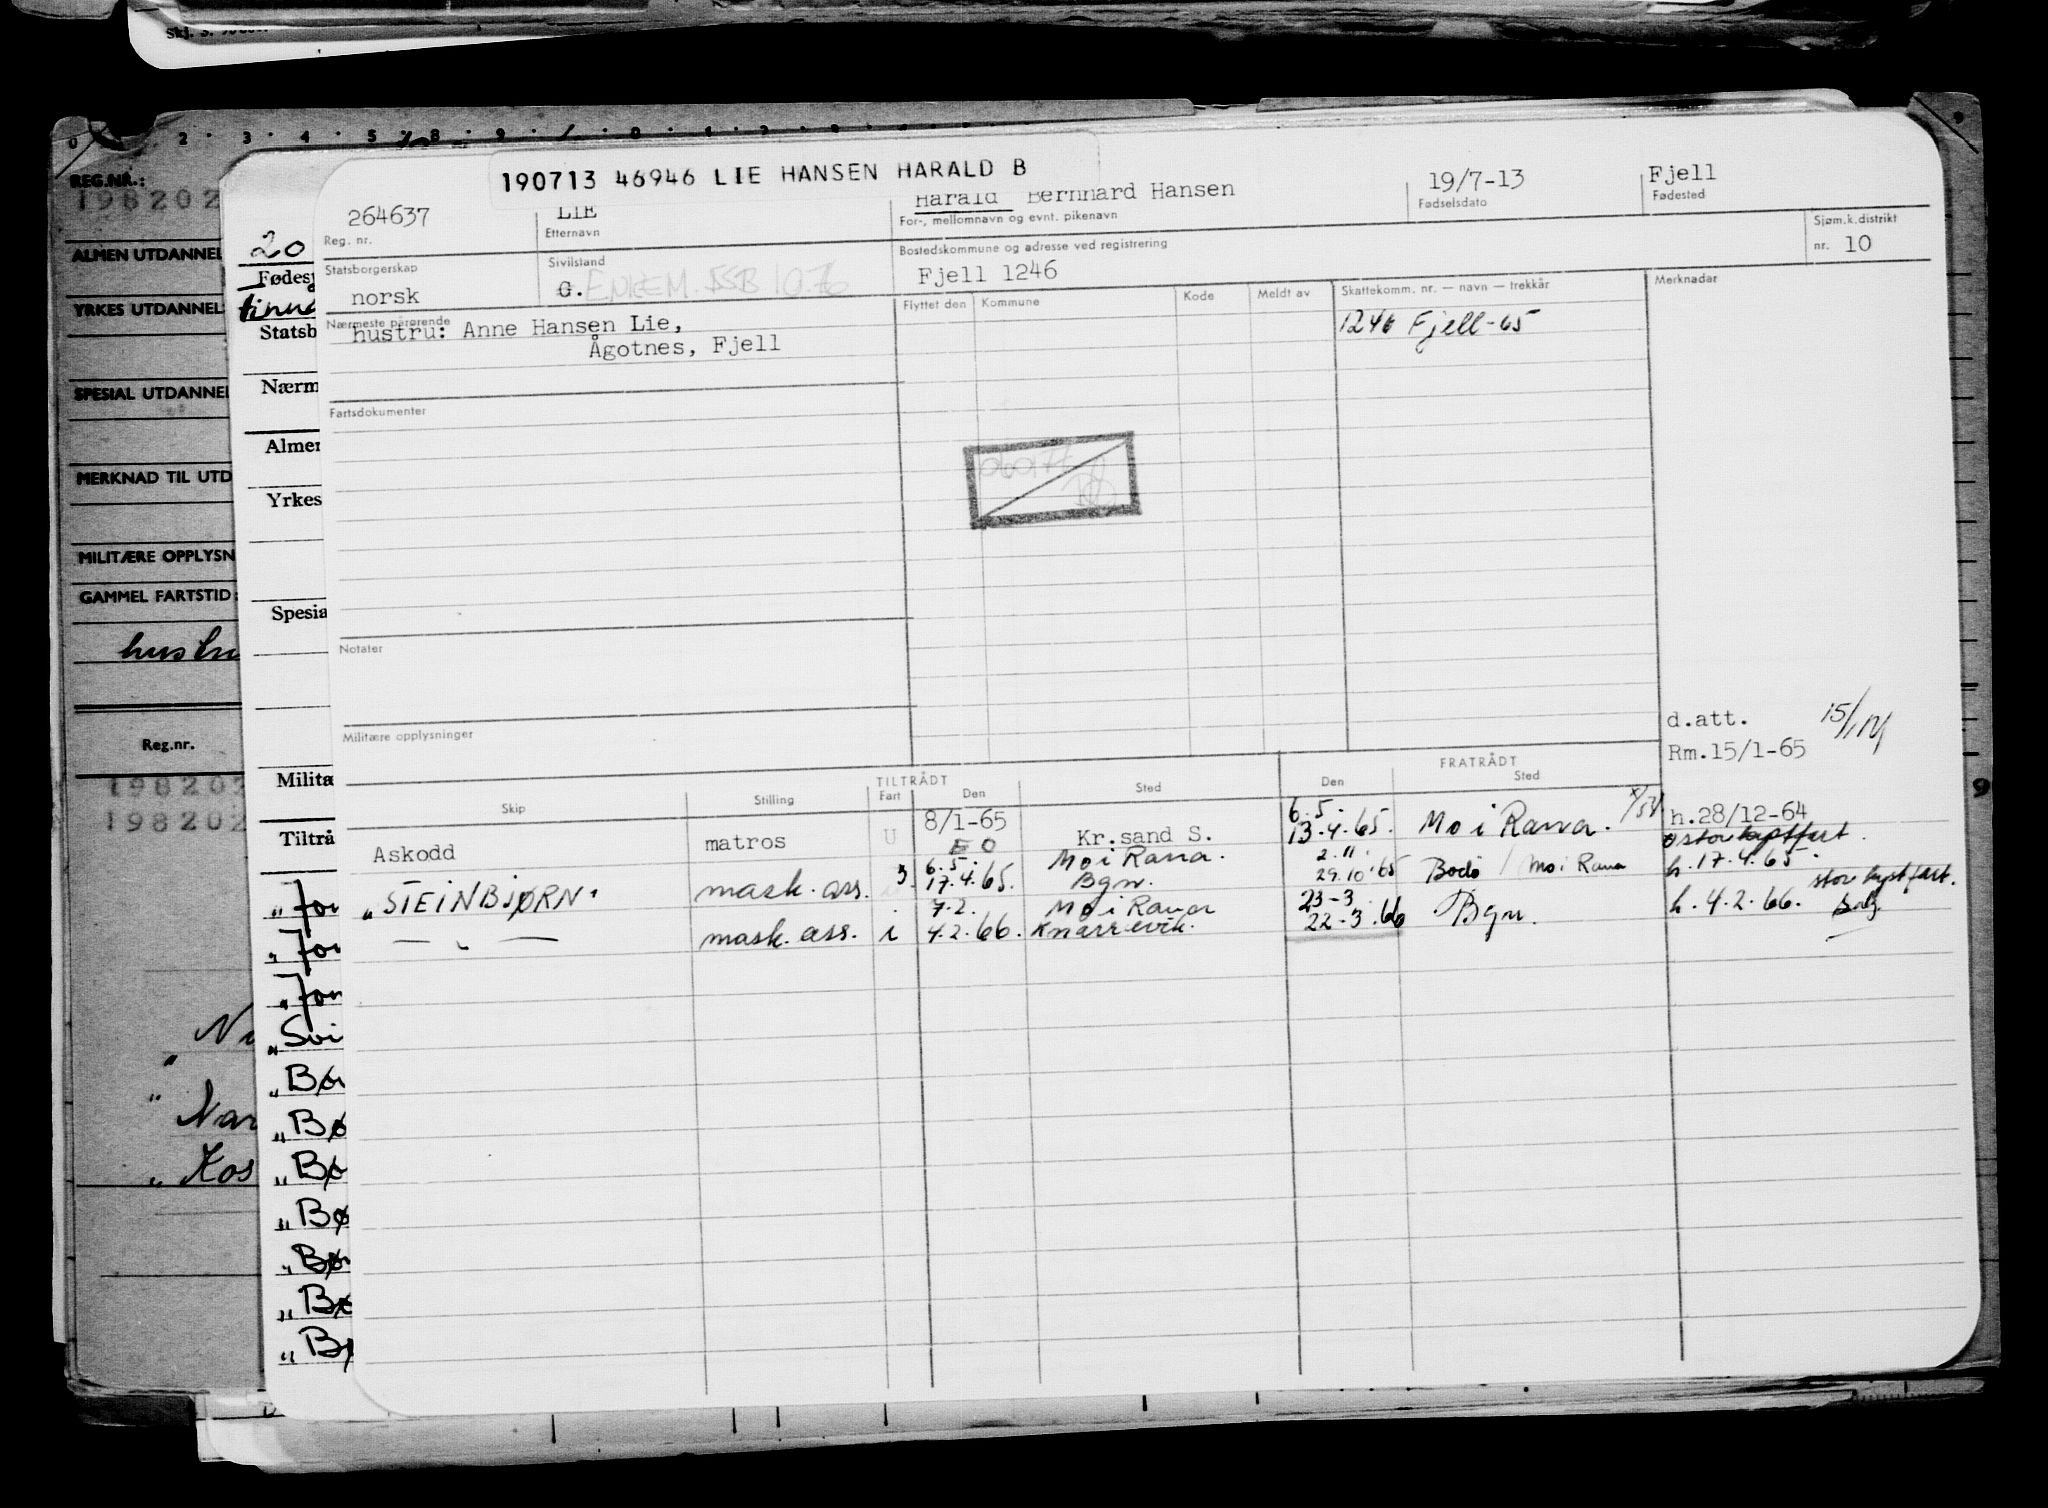 190713 46946 LIE HANSEN HARALD B
264637
Reg. nr.
LIE
Etternavn
Harald Bernhard Hansen
For-, mellomnavn og evnt. pikenavn
19/7-13
Fødselsdato
Fjell
Fødested
Statsborgerskap
norsk
Sivilstand
G. ENKEM. SSB 10.76
Bostedskommune og adresse ved registrering
Fjell 1246
Sjøm.k.distrikt
nr. 10
Nærmeste pårørende
hustru: Anne Hansen Lie,
Ågotnes, Fjell
Flyttet den
Kommune
Kode
Meldt av
Skattekomm. nr. — navn — trekkår
1246 Fjell-65
Merknader
Fartsdokumenter
Notater
Militære opplysninger
d.att.
15/1
Rm.15/1-65
TILTRÅDT
FRATRÅDT
Skip
Stilling
Fart
Den
Sted
Den
Sted
Askodd
matros
U
8/1-65
Kr.sand S.
6.5.
13.4.65.
Mo i Rana.
h.28/12-64
store kystfart.
"STEINBJØRN"
mask. ass.
6.5.
17.4.65.
Mo i Rana.
Bgn.
2.11.
29.10.65
Bodø / Mo i Rana
h. 17.4.65.
— " —
mask. ass.
i
7.2.
4.2.66.
Mo i Rana
Knarrevik.
23-3
22-3.66
Bgn.
h. 4.2.66.
store kystfart.
REG.NR.:
198202
ALMEN UTDANNEL
YRKES UTDANNEL
SPESIAL UTDANNEL
MERKNAD TIL UTD
MILITÆRE OPPLYSN
GAMMEL FARTSTID:
hustru
Reg.nr.
198202
198202
" Na
" Kos
20
Fødes
Statsb
Nærm
Almen
Yrkes
Spesia
Militæ
Tiltrå
" for
" for
" for
" Svi
" Bør
" Bø
" Bø
" Bø
" Bør
" Bø
" Bø
9